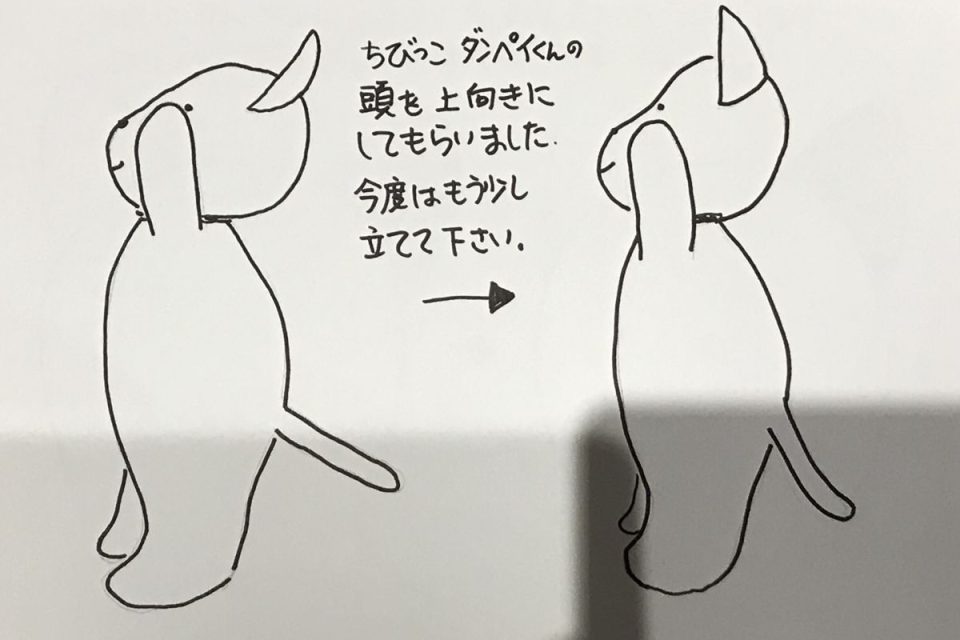 ちびっこ ダンペイくんの
頭を上向きに
してもらいました.
今度はもう少し
立てて下さい.